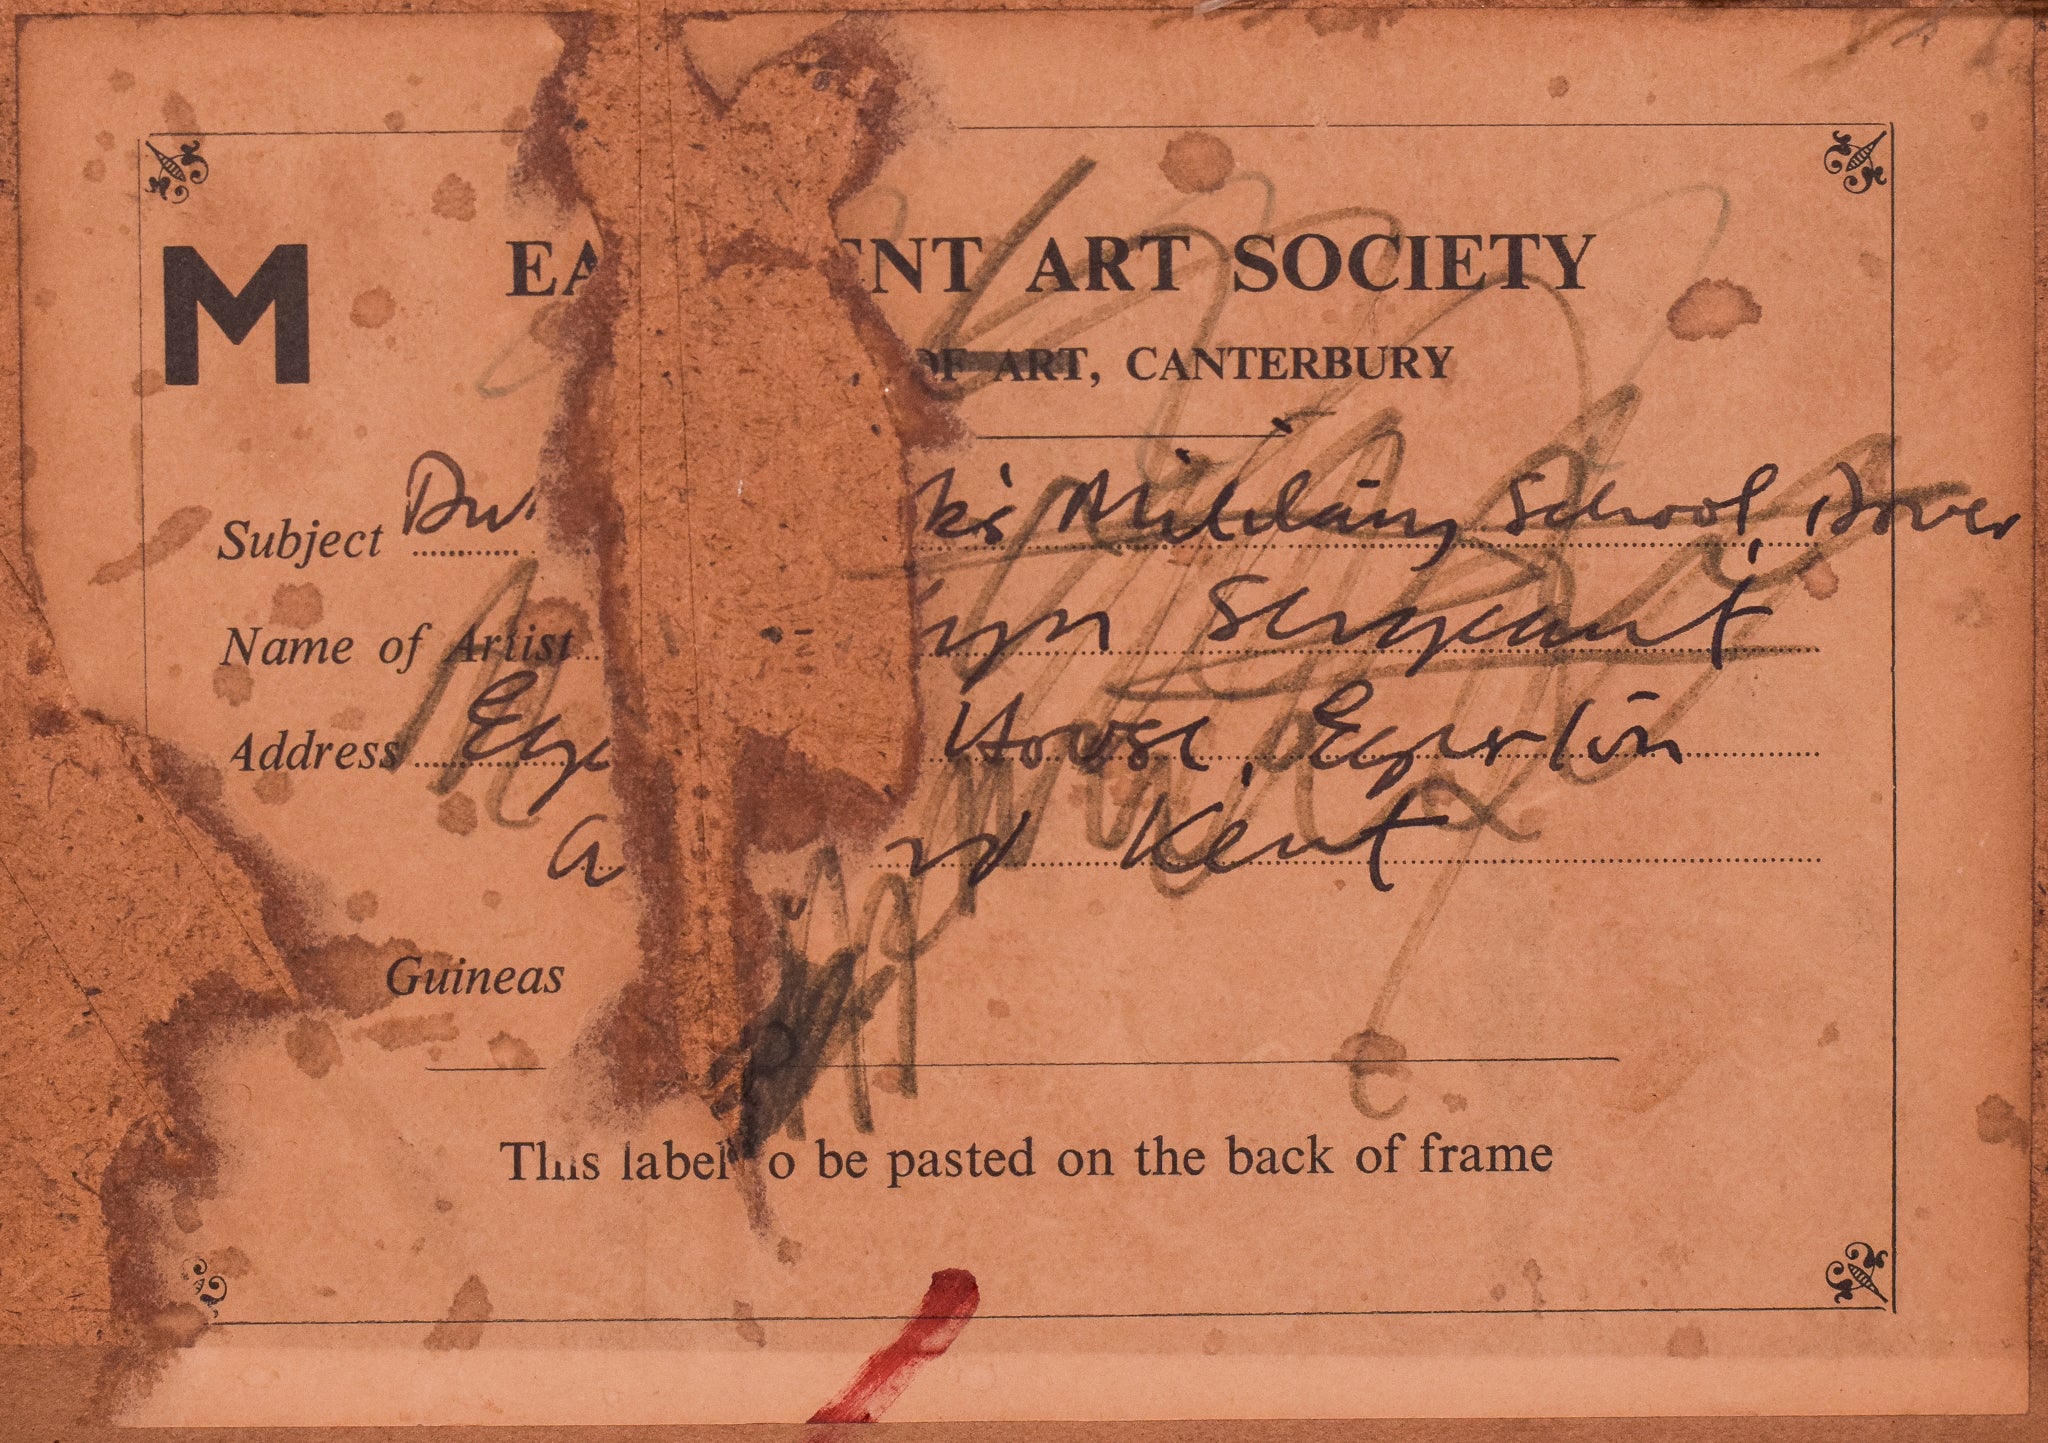 M
EA ENT ART SOCIETY
OF ART, CANTERBURY
Subject Du k's Military School, Dover
Name of Artist yn Sergeant
Address Ege House, Egerton
A rd Kent
Guineas
This label o be pasted on the back of frame